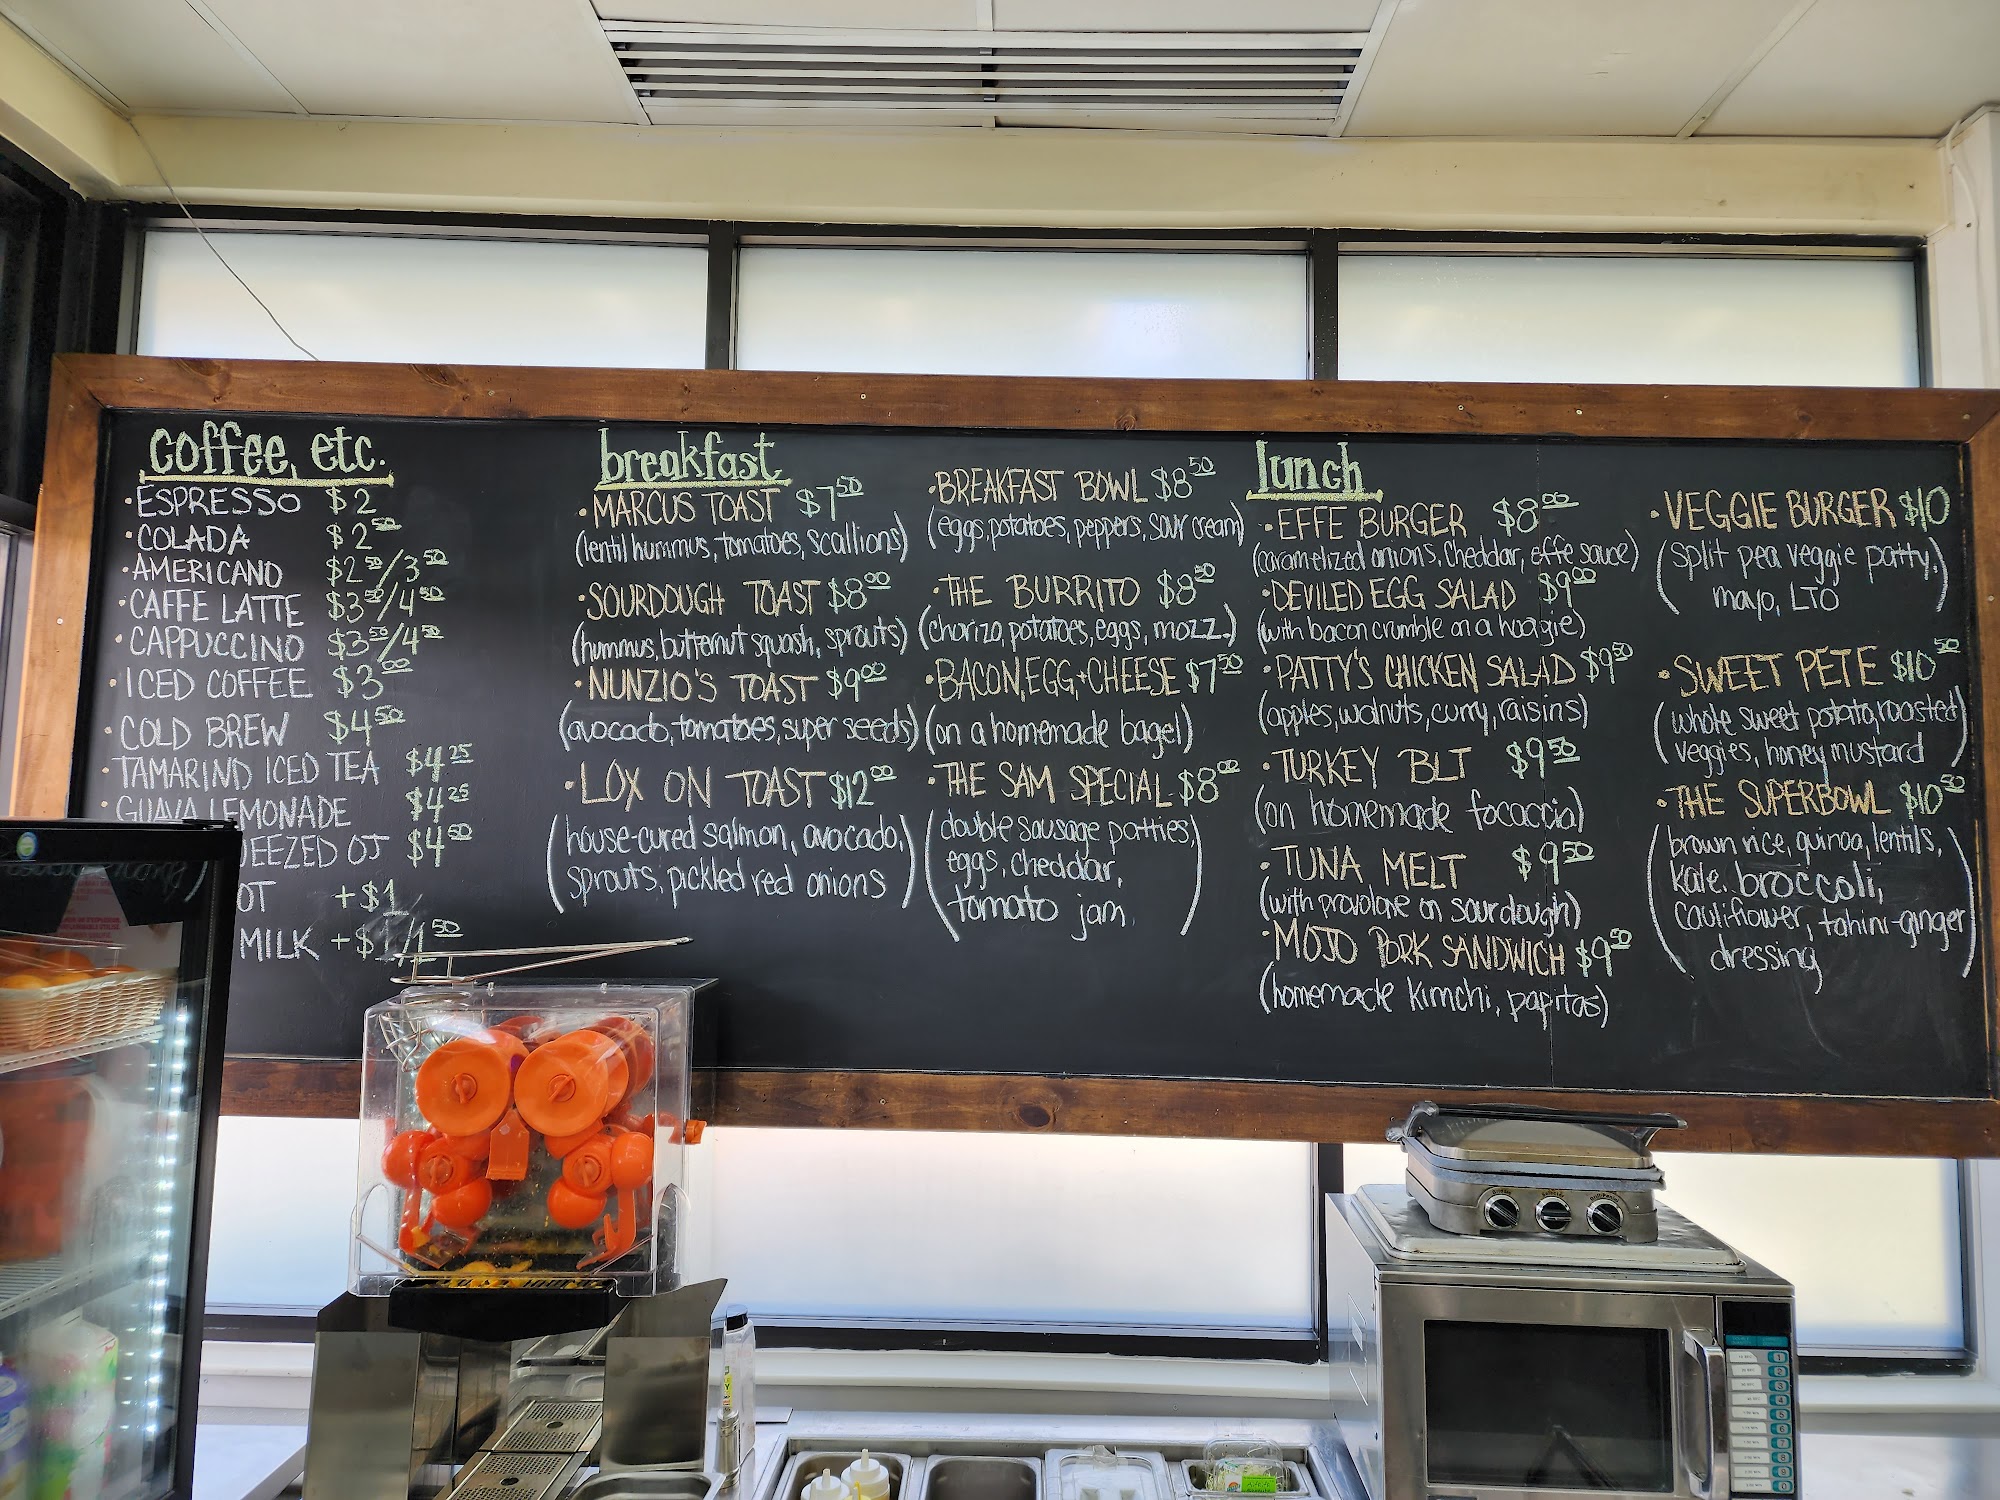 coffee, etc.
• ESPRESSO $2
• COLADA $2 50
• AMERICANO $2 50/3 50
• CAFFE LATTE $3 50/4 50
• CAPPUCCINO $3 50/4 50
• ICED COFFEE $3 00
• COLD BREW $4 50
• TAMARIND ICED TEA $4 25
• GUAVA LEMONADE $4 25
EEZED OJ $4 50
OT +$1
MILK +$1/1 50
breakfast
• MARCUS TOAST $7 50
(lentil hummus, tomatoes, scallions)
• SOURDOUGH TOAST $8 00
(hummus, butternut squash, sprouts)
• NUNZIO'S TOAST $9 00
(avocado, tomatoes, super seeds)
• LOX ON TOAST $12 00
(house-cured salmon, avocado,
sprouts, pickled red onions)
• BREAKFAST BOWL $8 50
(eggs, potatoes, peppers, sour cream)
• THE BURRITO $8 50
(chorizo, potatoes, eggs, mozz.)
• BACON, EGG, + CHEESE $7 50
(on a homemade bagel)
• THE SAM SPECIAL $8 00
(double sausage patties,
eggs, cheddar,
tomato jam)
lunch
• EFFE BURGER $8 00
(caramelized onions, cheddar, effe sauce)
• DEVILED EGG SALAD $9 00
(with bacon crumble on a hoagie)
• PATTY'S CHICKEN SALAD $9 50
(apples, walnuts, curry, raisins)
• TURKEY BLT $9 50
(on homemade focaccia)
• TUNA MELT $9 50
(with provolone on sourdough)
• MOJO PORK SANDWICH $9 50
(homemade kimchi, papitas)
• VEGGIE BURGER $10
(split pea veggie patty,
mayo, LTO)
• SWEET PETE $10 50
(whole sweet potato, roasted
veggies, honey mustard)
• THE SUPERBOWL $10 50
(brown rice, quinoa, lentils,
kale, broccoli,
cauliflower, tahini-ginger
dressing)